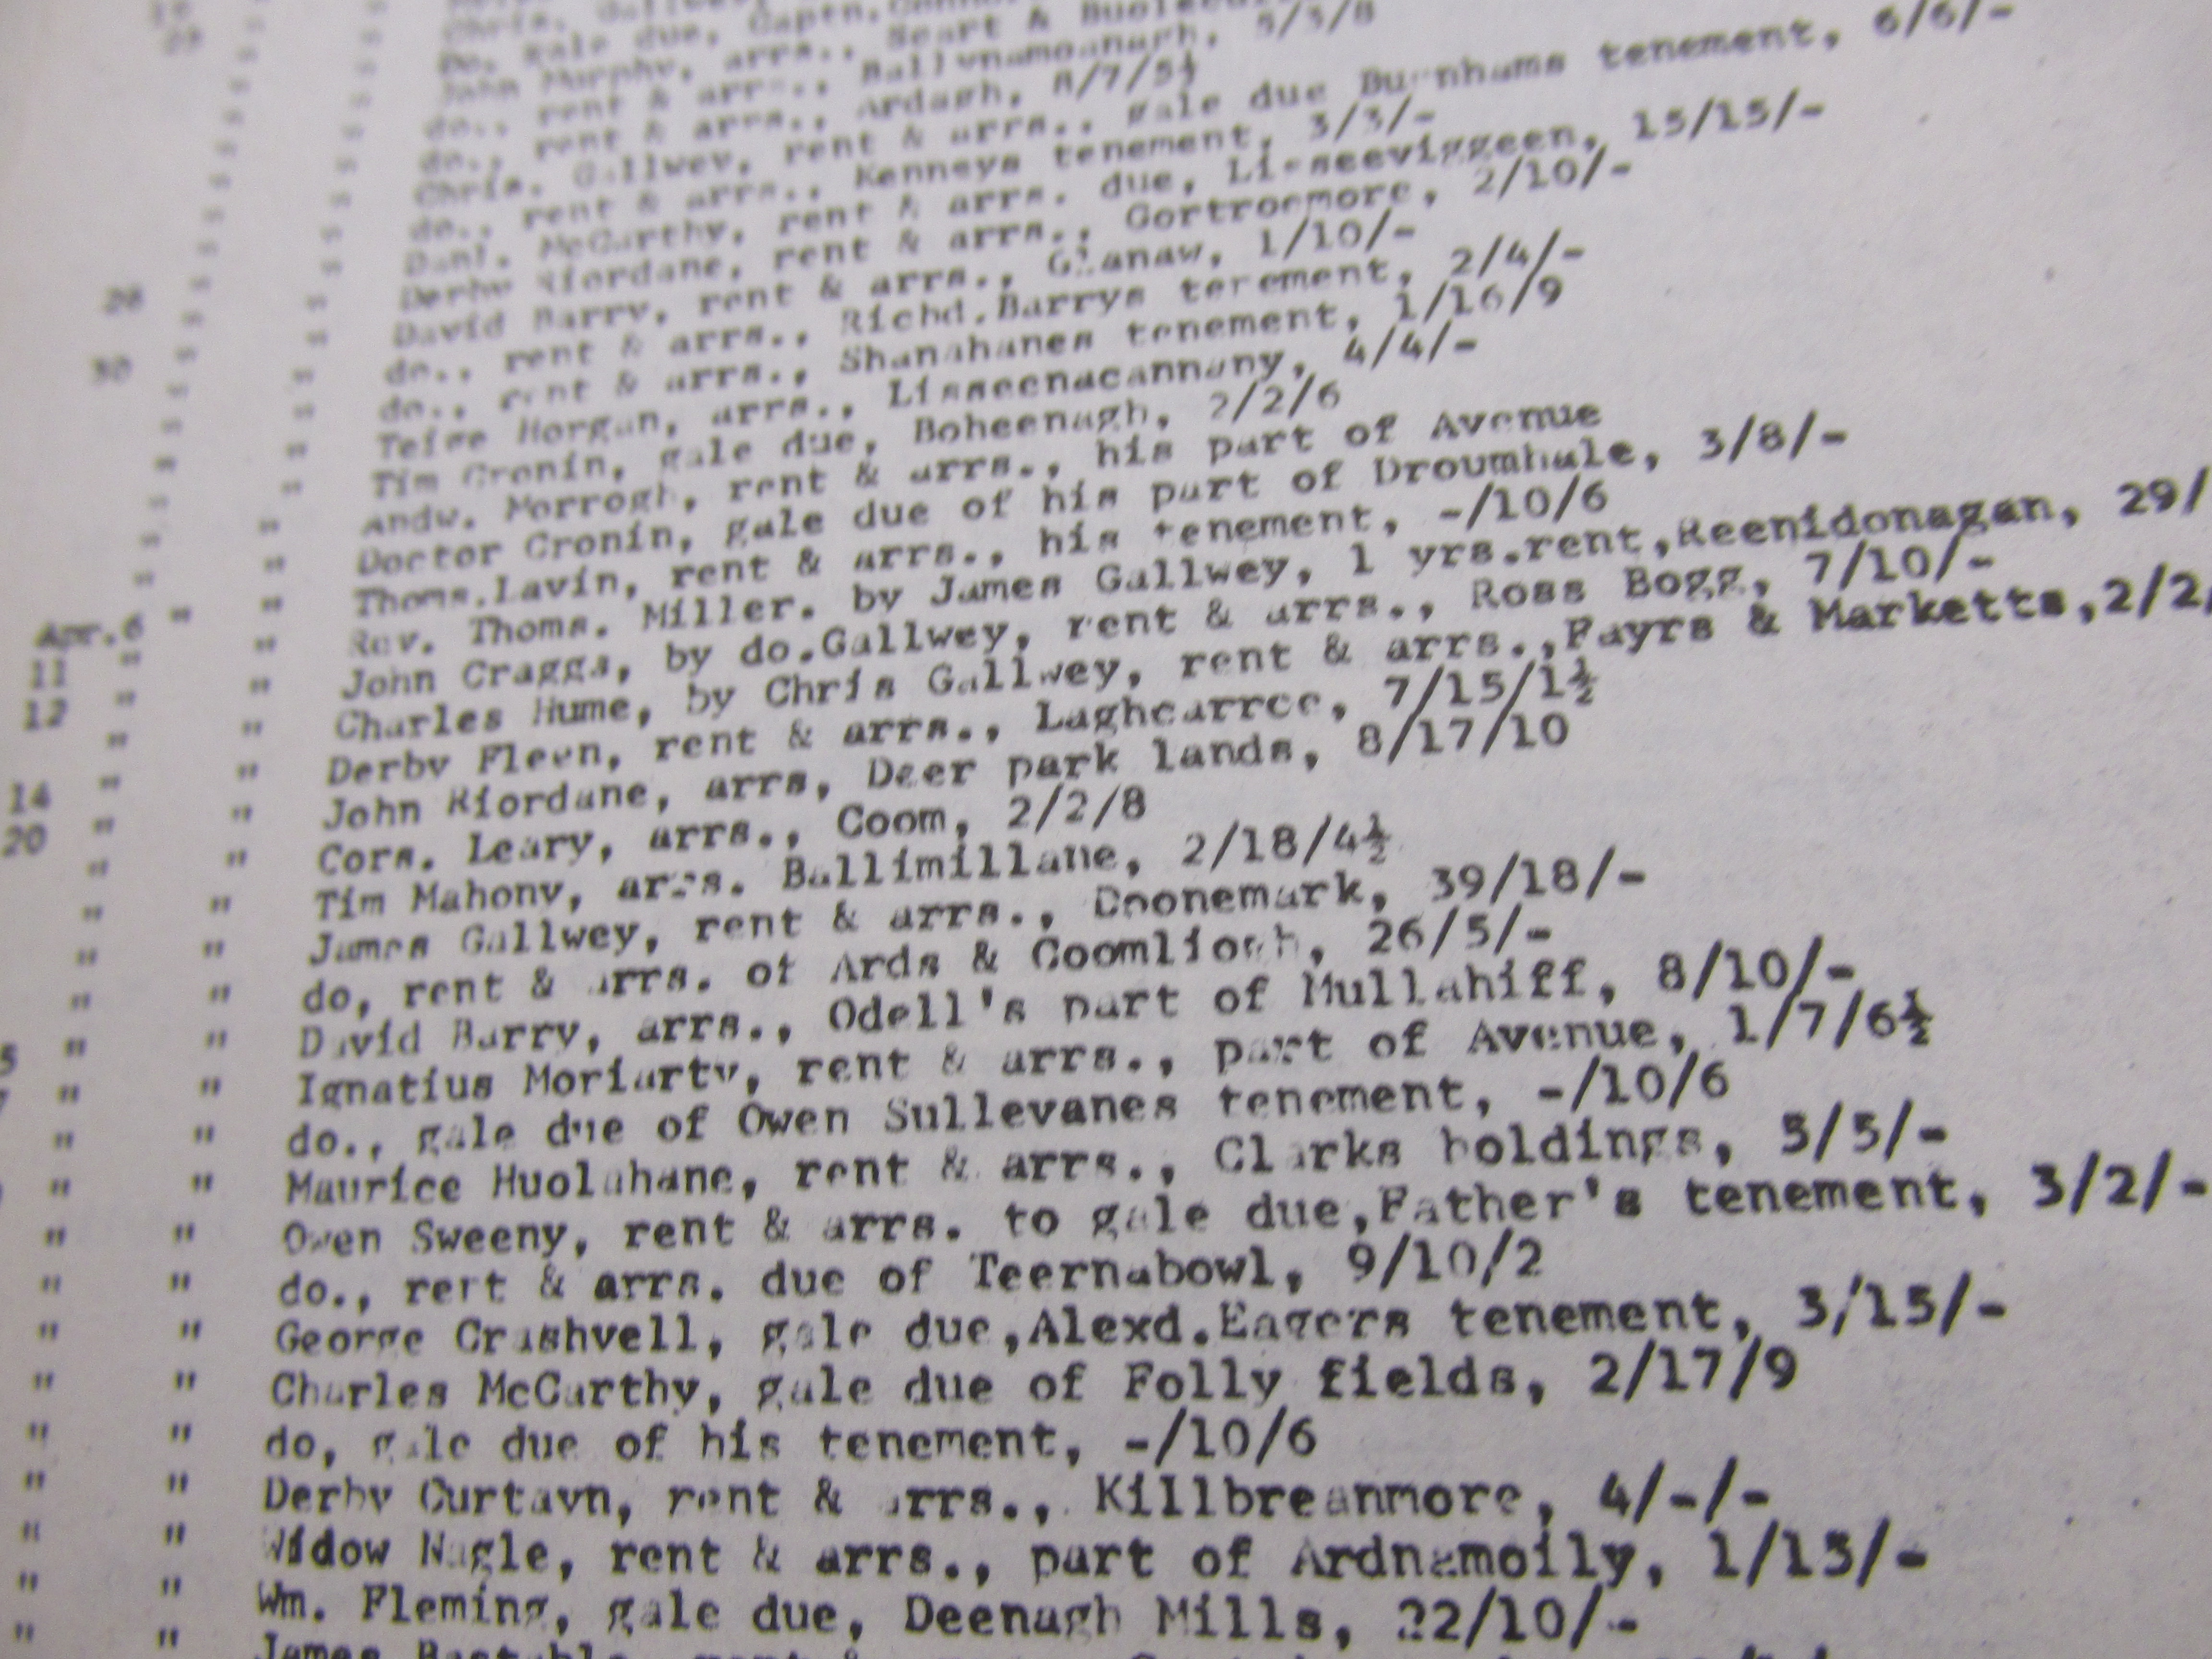 Chris. Gallwey
Do. gale due, Captn.
John Murphy, arrs., Scart &
do., rent & arrs., Ballynamoanagh, 5/5/8
do., rent & arrs., Ardagh, 8/7/5½
Chris. Gallwey, rent & arrs., gale due Burnhams tenement, 6/6/-
do., rent & arrs., Kenneys tenement, 3/3/-
Danl. McCarthy, rent & arrs. due, Lisseeviggeen, 15/15/-
Derby Riordane, rent & arrs., Gortroemore, 2/10/-
28 " " David Barry, rent & arrs., Glanaw, 1/10/-
" " do., rent & arrs., Richd.Barrys terement, 2/4/-
30 " " do., rent & arrs., Shanahanes tenement, 1/16/9
" " Teige Horgan, arrs., Lisseenacannany, 4/4/-
" " Tim Cronin, gale due, Boheenagh, 2/2/6
" " Andw. Morrogh, rent & arrs., his part of Avenue
" " Doctor Cronin, gale due of his part of Droumhale, 3/8/-
" " Thoms.Lavin, rent & arrs., his tenement, -/10/6
Apr.6 " " Rev. Thoms. Miller. by James Gallwey, 1 yrs.rent,Reenidonagan, 29/
11 " " John Craggs, by do.Gallwey, rent & arrs., Ross Bogg, 7/10/-
12 " " Charles Hume, by Chris Gallwey, rent & arrs.,Fayrs & Marketts,2/2
" " Derby Fleen, rent & arrs., Laghcarree, 7/15/1½
14 " " John Riordane, arrs, Deer park lands, 8/17/10
20 " " Cors. Leary, arrs., Coom, 2/2/8
" " Tim Mahony, arrs. Ballimillane, 2/18/4½
" " James Gallwey, rent & arrs., Doonemark, 39/18/-
" " do, rent & arrs. of Ards & Coomliogh, 26/5/-
" " David Barry, arrs., Odell's part of Mullahiff, 8/10/-
5 " " Ignatius Moriarty, rent & arrs., part of Avenue, 1/7/6½
7 " " do., gale due of Owen Sullevanes tenement, -/10/6
" " Maurice Huolahane, rent & arrs., Clarks holdings, 5/5/-
" " Owen Sweeny, rent & arrs. to gale due,Father's tenement, 3/2/-
" " do., rert & arrs. due of Teernabowl, 9/10/2
" " George Crashvell, gale due,Alexd.Eagers tenement, 3/15/-
" " Charles McCarthy, gale due of Folly fields, 2/17/9
" " do, gale due of his tenement, -/10/6
" " Derby Curtayn, rent & arrs., Killbreanmore, 4/-/-
" " Widow Nagle, rent & arrs., part of Ardnamoily, 1/15/-
" " Wm. Fleming, gale due, Deenagh Mills, 22/10/-
" " James